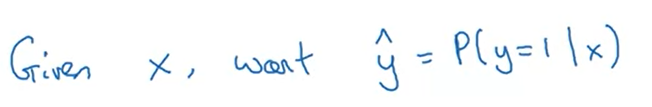 Given x, want ŷ = P(y=1|x)